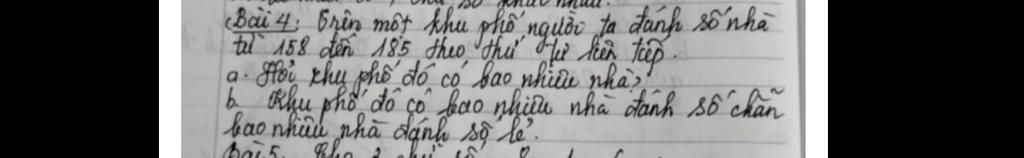 Bài 4: Trên một khu phố người ta đánh số nhà
từ 158 đến 185 theo thứ tự liên tiếp.
a. Hỏi khu phố đó có bao nhiêu nhà?
b. Khu phố đó có bao nhiêu nhà đánh số chẵn
bao nhiêu nhà đánh số lẻ.
Bài 5.